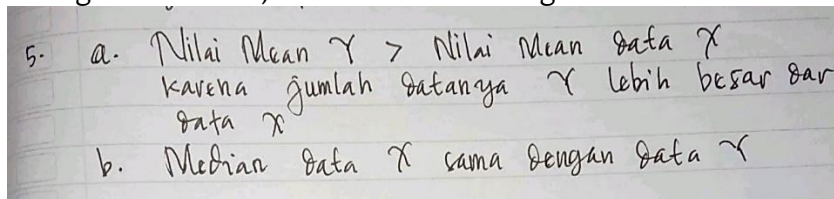 5. a. Nilai Mean Y > Nilai Mean data X
karena jumlah datanya Y lebih besar dar
data X
b. Median data X sama dengan data Y